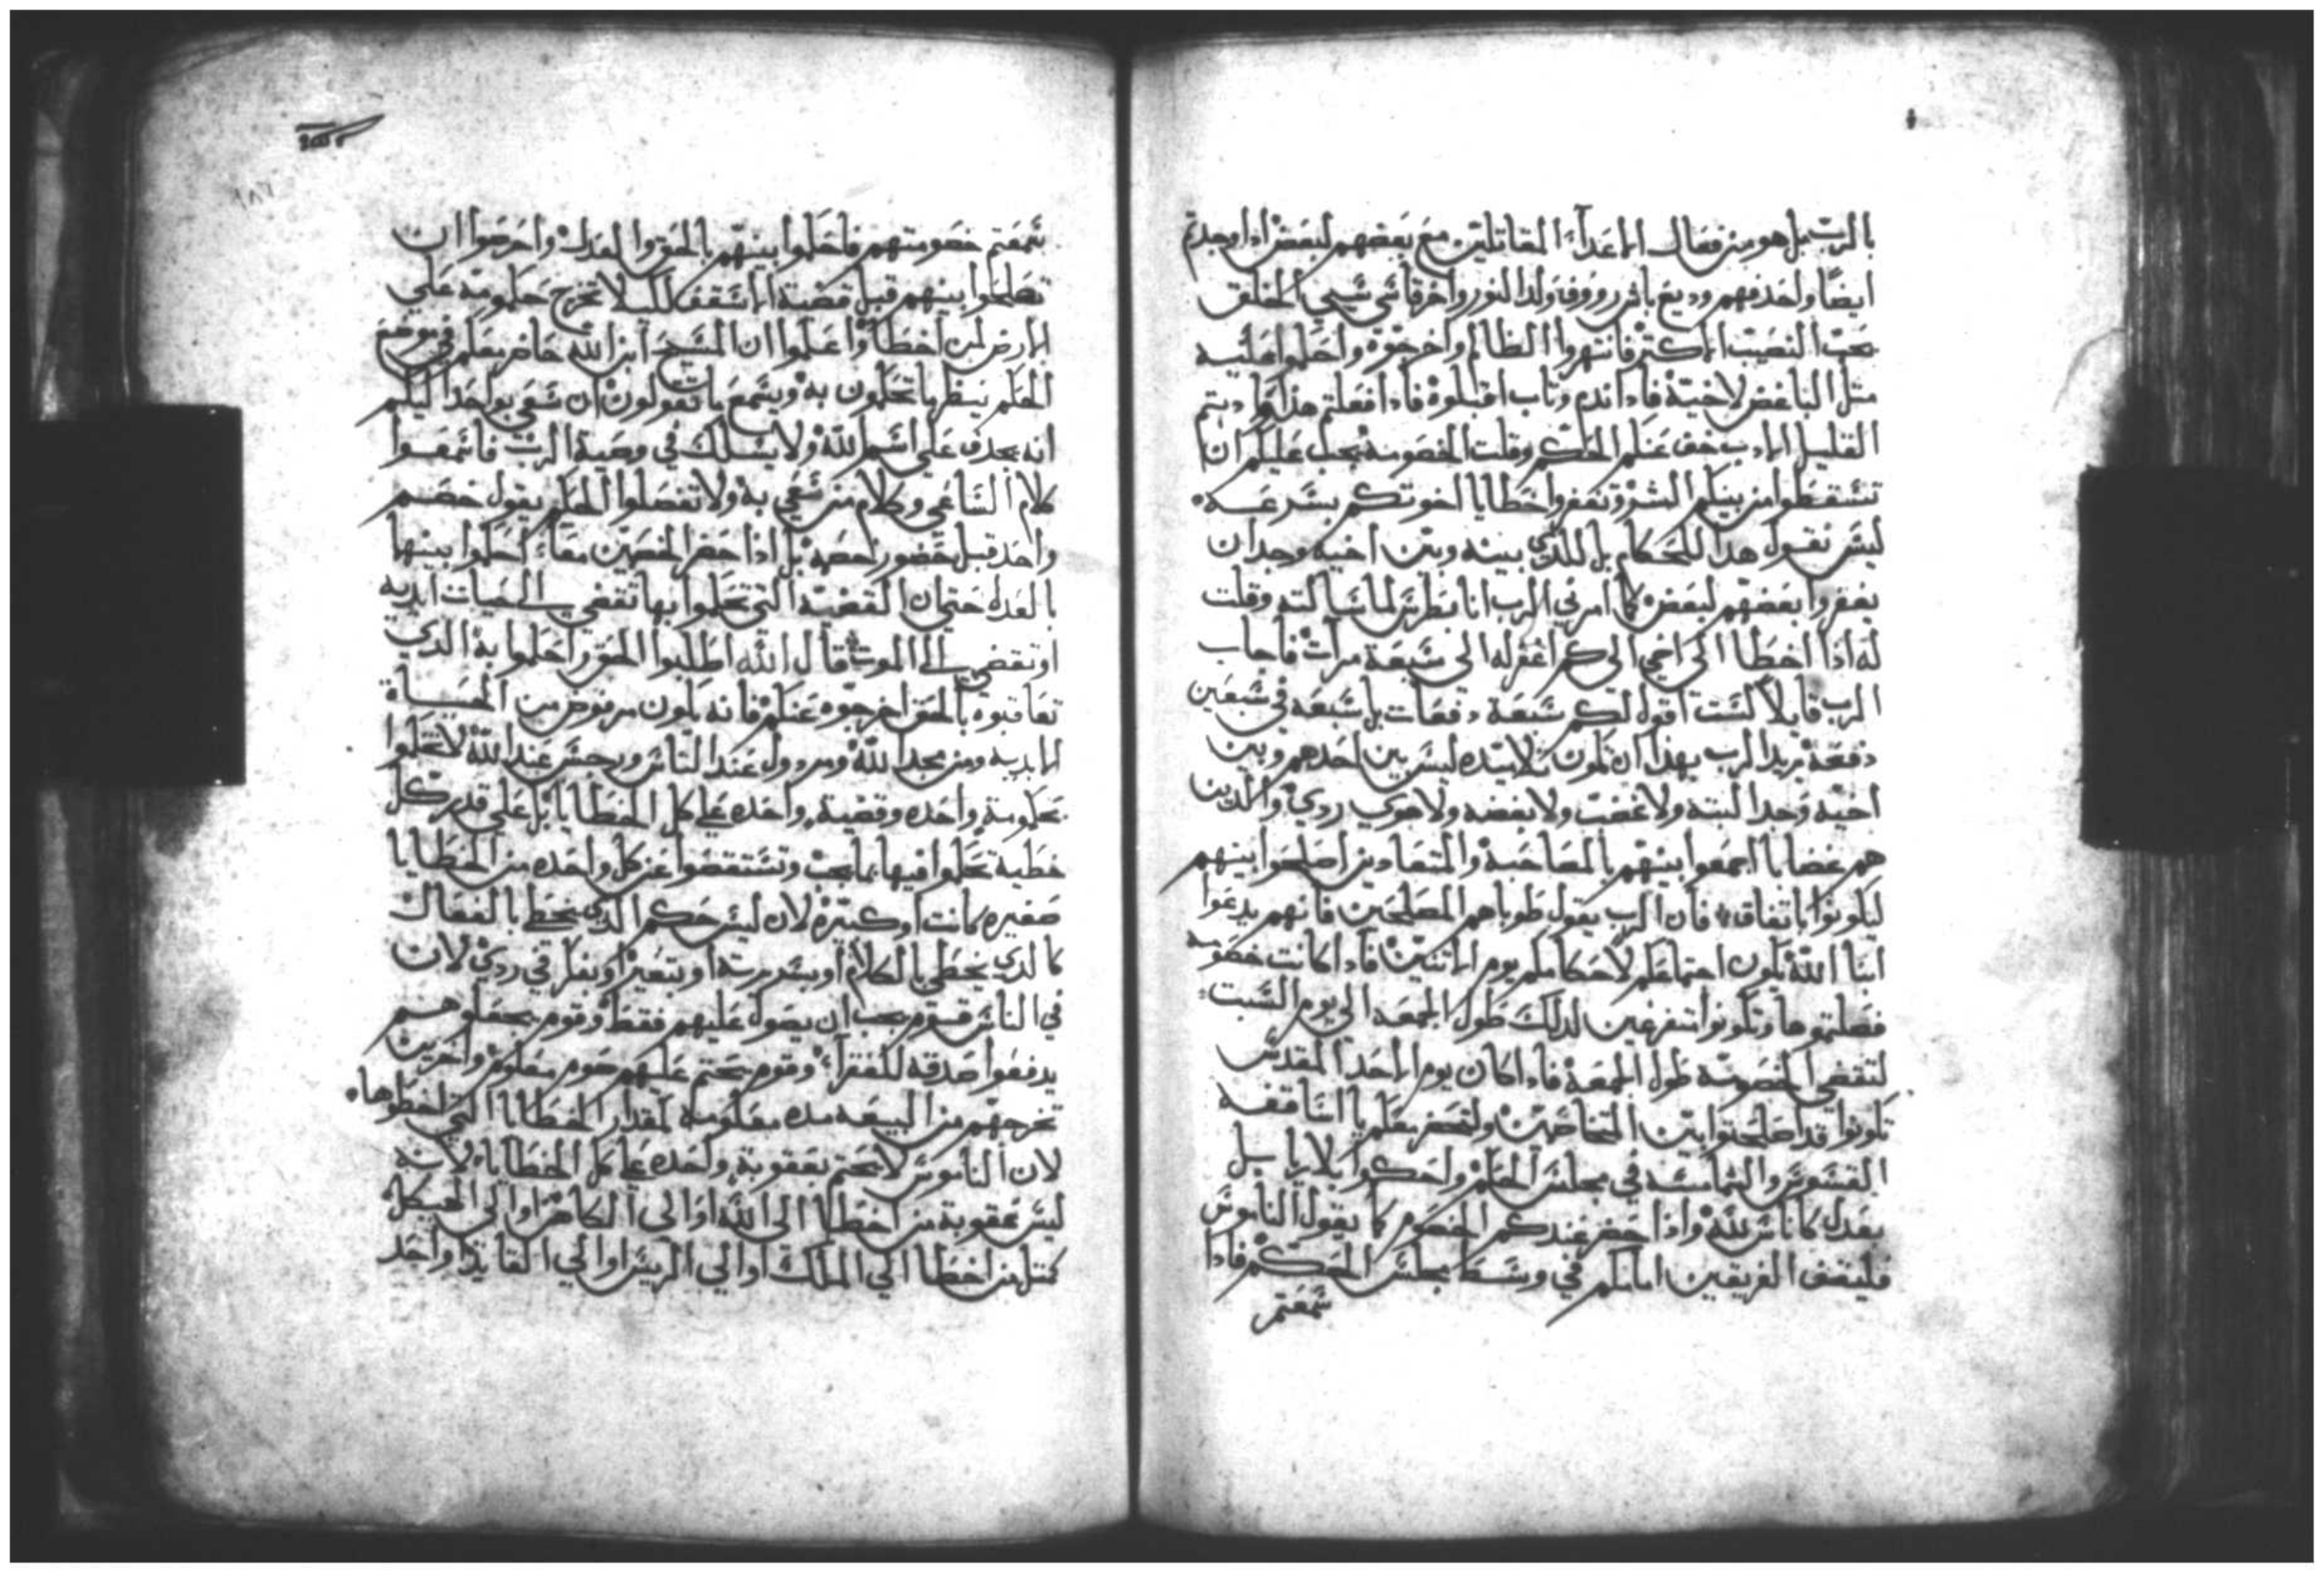 بالرب بل هو من فعال الاعداء المقاتلين مع بعضهم لبعض اداوجدتم
ايضًا واحد فهم وديع باثر رووف ولد النور واخر قاسي سيي الخلق
يحب النصيب الاكتر فانتهروا الظالم واخرجوه واحكموا عليه
مثل الباغض لاخيه فاداندم وتاب اقبلوه فادافعلتم هذا وادبتم
القليل الادب خف عنكم الحكم وقلت الخصومه يجب عليكم ان
تسقطوا من بينكم الشر وتغفروا خطايا اخوتكم بسرعه
ليس نقول هدا للحكام بل للذي بينه وبين اخيه وجد ان
يغفروا بعضهم لبعض كما امرني الرب انا بطرس لما سالته وقلت
له اذا اخطا الي اخي الي كم اغفر له الي سبعة مرات فاجاب
الرب قايلا لست اقول لكم سبعة دفعات بل سبعه في سبعين
دفعة يريد الرب بهذا ان تكون تلاميده ليس بين احدهم وبين
اخيه وجد البته ولا غضب ولا بغضه ولا هوي ردي والذين
هم غضابا اجمعوا بينهم بالمصاحبة والمتعادين اصلحوا بينهم
ليكونوا باتفاق فان الرب يقول طوباهم المصلحين فانهم يدعوا
ابنا الله يكون اجتماعكم لاحكامكم يوم الاتنين فاداكانت خصومه
فصلتموها وتكونوا متفرغين لدلك طول الجمعه الي يوم السبت
لتقضي الخصومه طول الجمعة فاداكان يوم الاحد المقدس
تكونوا قد اصلحتوا بين المتخاصمين ولتحضر معكم يا اساقفه
القسوس والشمامسه في مجلس الحكم واحكموا بلا ريا بل
بعدل كاناس لله واذا حضر عندكم الخصوم كما يقول الناموس
فليقف الفريقين امامكم في وسط مجلس الحكم فادا
سمعتم
سمعتم خصومتهم فاحكموا بينهم بالحق والعدل واحرصوا ان
تصلحوا بينهم قبل قضية الاسقف لكيلا تخرج حكومة علي
الارض لمن اخطا واعلموا ان المسيح ابن الله حاضر معكم في موضع
الحكم ينظر ما تحكمون به ويسمع ما تقولون ان سعي بواحد اليكم
انه يجدف علي اسم الله ولا يسلك في وصية الرب فاسمعوا
كلام الساعي وكلام من سعي به ولا تفصلوا الحكم بقول خصم
واحد قبل حضور خصمه بل اذا حضر الخصمين معاً احكموا بينهما
بالعدل حتي ان القضية التي تحكموا بها تقضي الي الحيات ابديه
او تقضي الي الموت قال الله اطلبوا الحق واحكموا به الذي
تعاقبوه بالحق اخرجوه عنكم فانه يكون مرفوض من الحياة
الابديه ومن مجد الله ومردول عند الناس ورجس عند الله لا تحكموا
بحكومة واحده وقضية واحده علي كل الخطايا بل علي قدر كل
خطية تحكموا فيها بما يجب وتستقصوا عن كل واحده من الخطايا
صغيره كانت او كبيرة لان ليس حكم الذي يخطي بالفعال
كالذي يخطي بالكلام او بسريرته او بتعير او بفكر في ردي لان
في الناس قوم يجب ان يصول عليهم فقط وقوم يجعلوهم
يدفعوا صدقه للفقراء وقوم يحتم عليهم صوم معلوم واخرين
تخرجهم من البيعه مده معلومة لمقدار الخطايا التي اخطوها
لان الناموس لا يحتم بعقوبة واحده علي كل الخطايا لانه
ليس عقوبة من اخطا الي الله او الي الكاهن او الي الهيكل
كمثل من اخطا الي الملك او الي الريس او الي القايد او احد